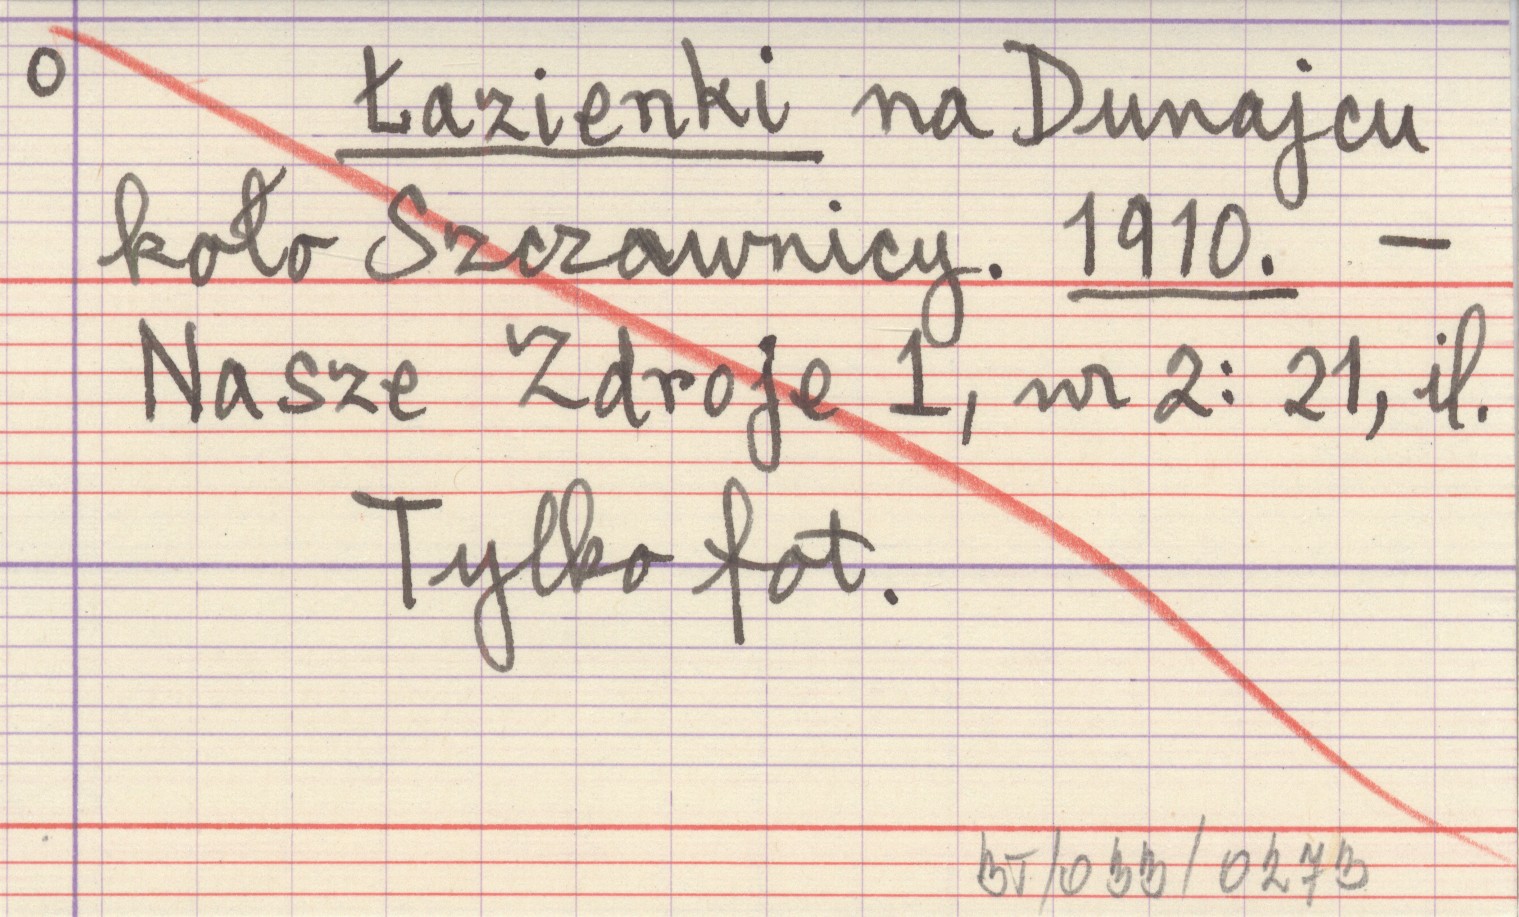 o
Łazienki na Dunajcu
koło Szczawnicy. 1910. —
Nasze Zdroje 1, nr 2: 21, il.
Tylko fot.
BT/033/0273